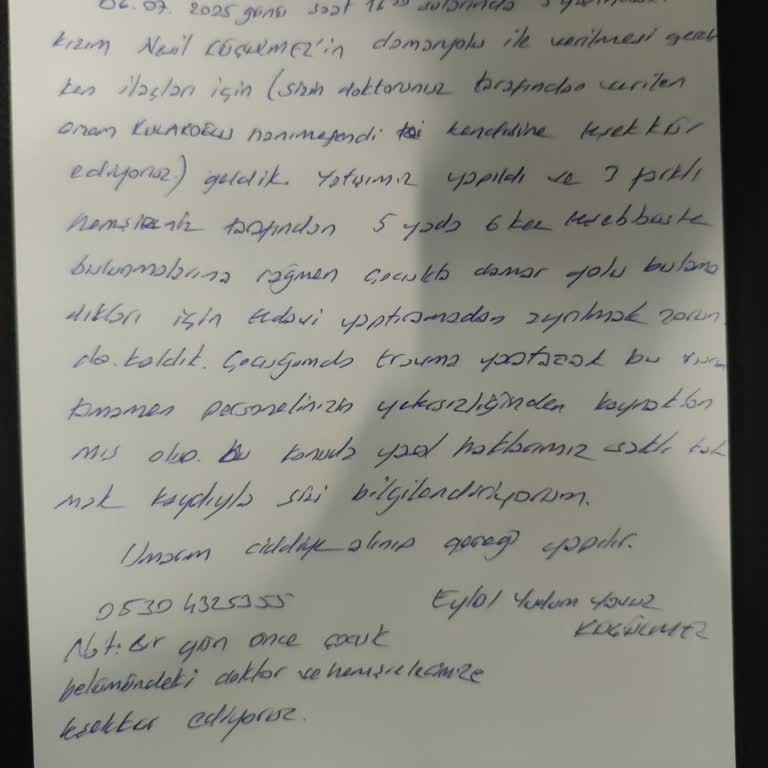 06.07.2025 günü saat 16
kızım Nesil KÜÇÜKMEZ'in damaryolu ile verilmesi gerek
ken ilaçları için (sizin doktorunuz tarafından verilen
hanımefendi kendisine teşekkür
ediyoruz.) geldik. Yatışımız yapıldı ve 3 farklı
hemşireniz tarafından 5 yada 6 kez teşebbüste
bulunmalarına rağmen çocukta damar yolu bulama
dıkları için tedavi yaptıramadan ayrılmak zorun
da kaldık. Çocuğumda travma yaratacak bu
tamamen personelinizin yetersizliğinden kaynaklan
mış olup. bu konuda yasal haklarımız saklı kal
mak kaydıyla sizi bilgilendiriyorum.
Umarım ciddiye alınıp gereği yapılır.
0530 4325355 Eylül
KÜÇÜKMEZ
Not: Bir gün önce çocuk
bölümündeki doktor ve hemşirelerimize
teşekkür ediyoruz.